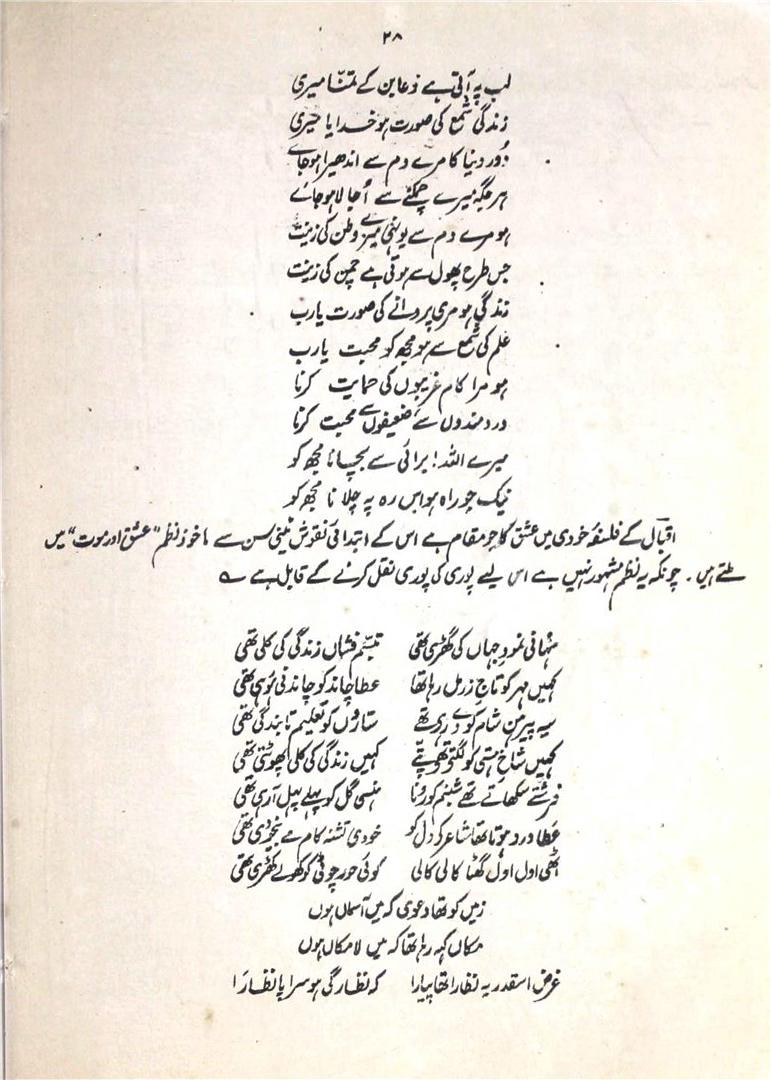 ۲۸
لب پہ آتی ہے دعا بن کے تمنا میری
زندگی شمع کی صورت ہو خدایا میری
دور دنیا کا مرے دم سے اندھیرا ہو جائے
ہر جگہ میرے چمکنے سے اُجالا ہو جائے
ہو مرے دم سے یونہی میرے وطن کی زینت
جس طرح پھول سے ہوتی ہے چمن کی زینت
زندگی ہو مری پروانے کی صورت یارب
علم کی شمع سے ہو مجھ کو محبت یارب
ہو مرا کام غریبوں کی حمایت کرنا
دردمندوں سے ضعیفوں سے محبت کرنا
میرے اللہ! برائی سے بچانا مجھ کو
نیک جو راہ ہو اس رہ پہ چلانا مجھ کو
اقبال کے فلسفۂ خودی میں عشق کا جو مقام ہے اس کے ابتدائی نقوش ٹینی سن سے ماخوذ نظم "عشق اور موت" میں
ملتے ہیں۔ چونکہ یہ نظم مشہور نہیں ہے اس لیے پوری کی پوری نقل کرنے کے قابل ہے ؎
سہانی نمودِ جہاں کی گھڑی تھی تبسم فشاں زندگی کی کلی تھی
کہیں مہر کو تاجِ زر مل رہا تھا عطا چاند کو چاندنی ہو رہی تھی
سیہ پیرہن شام کو دے رہے تھے ستاروں کو تعلیمِ تابندگی تھی
کہیں شاخِ ہستی کو لگتے تھے پتے کہیں زندگی کی کلی پھوٹتی تھی
فرشتے سکھاتے تھے شبنم کو رونا ہنسی گل کو پہلے پہل آ رہی تھی
عطا درد ہوتا تھا شاعر کے دل کو خودی تشنہ کام مے بیخودی تھی
اٹھی اول اول گھٹا کالی کالی کوئی حور چوٹی کو کھولے کھڑی تھی
زمیں کو تھا دعوی کہ میں آسماں ہوں
مکاں کہہ رہا تھا کہ میں لامکاں ہوں
غرض اسقدر یہ نظارا تھا پیارا کہ نظارگی ہو سراپا نظارا